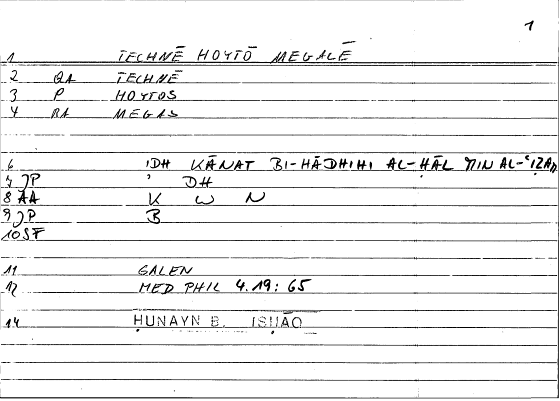 1
1 TECHNĒ HOYTŌ MEGALĒ
2 QA TECHNĒ
3 P HOYTOS
4 RA MEGAS
6 IDH KĀNAT BI-HĀDHIHI AL-HĀL MIN AL-ʿIẒAM
7 JP ʾ DH
8 AA K W N
9 JP B
10 SF
11 GALEN
12 MED PHIL 4.19: 65
14 ḤUNAYN B. ISḤĀQ